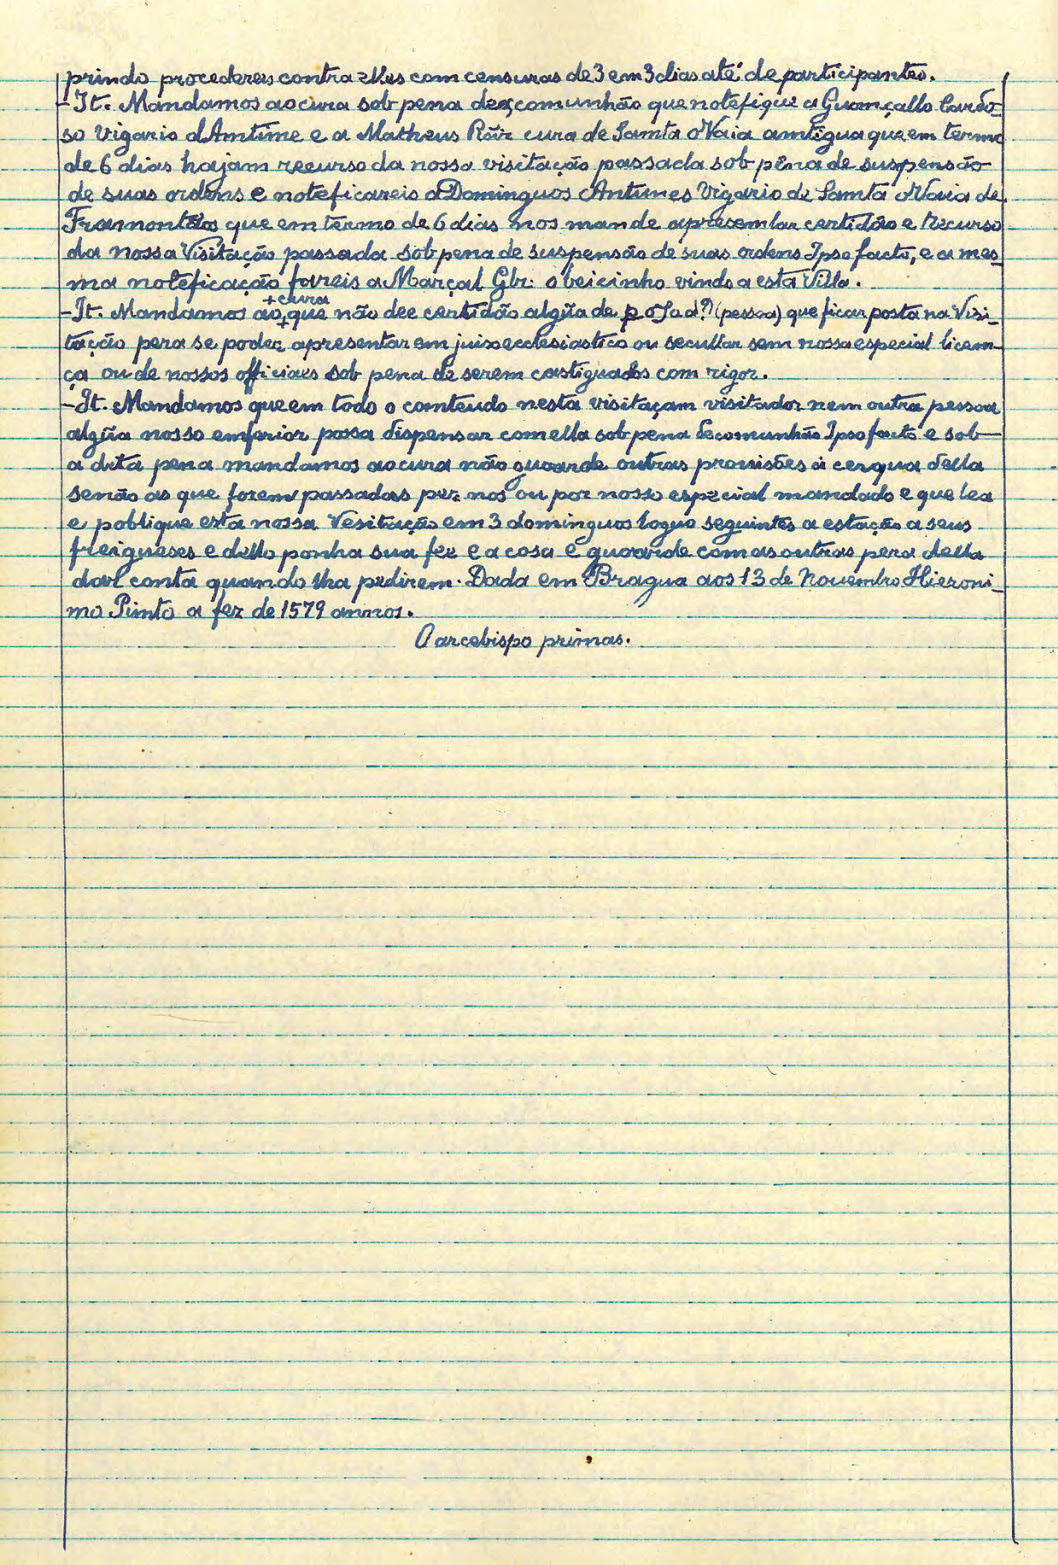 prindo procedereis contra elles com censuras de 3 em 3 dias até de participantes.
- It. Mandamos ao cura sob pena descomunhão que notefique a Guonçallo Cardo-
so Vigario d'Antime e a Matheus Roiz cura de Samta Ovaia amtigua que em termo
de 6 dias hajam recurso da nossa visitação passada sob pena de suspensão
de suas ordens e noteficareis a Dominguos Antunes Vigario de Samta Ovaia de
Framontãos que em termo de 6 dias nos mande apresemtar certidão e Recurso
da nossa Visitação passada sob pena de suspensão de suas ordens Ipso facto, e a mes-
ma noteficação fareis a Marçal Glz: o beicinho vindo a esta Villa.
+ cura
- It. Mandamos ao + que não dee certidão algũa de p o s a d? (pessoa) que ficar posta na Visi-
tação pera se poder apresentar em juizo ecclesiastico ou secullar sem nossa especial licem-
ça ou de nossos officiaes sob pena de serem castiguados com rigor.
- It. Mandamos que em todo o comteudo nesta visitaçam visitador nem outra pessoa
algũa nosso emferior possa dispensar com ella sob pena decomunhão Ipso facto e sob
a dita pena mandamos ao cura não guoarde outras provisões á cerqua della
senão as que forem passadas per nos ou por nosso especial mandado e que lea
e poblique esta nossa Vesitação em 3 dominguos loguo seguintes a estação a seus
freigueses e dello ponha sua fee e a cosa e guoarde com as outras pera della
dar conta quando lha pedirem. Dada em Bragua aos 13 de Novembro Hieroni-
mo Pimto a fez de 1579 annos.
O arcebispo primas.